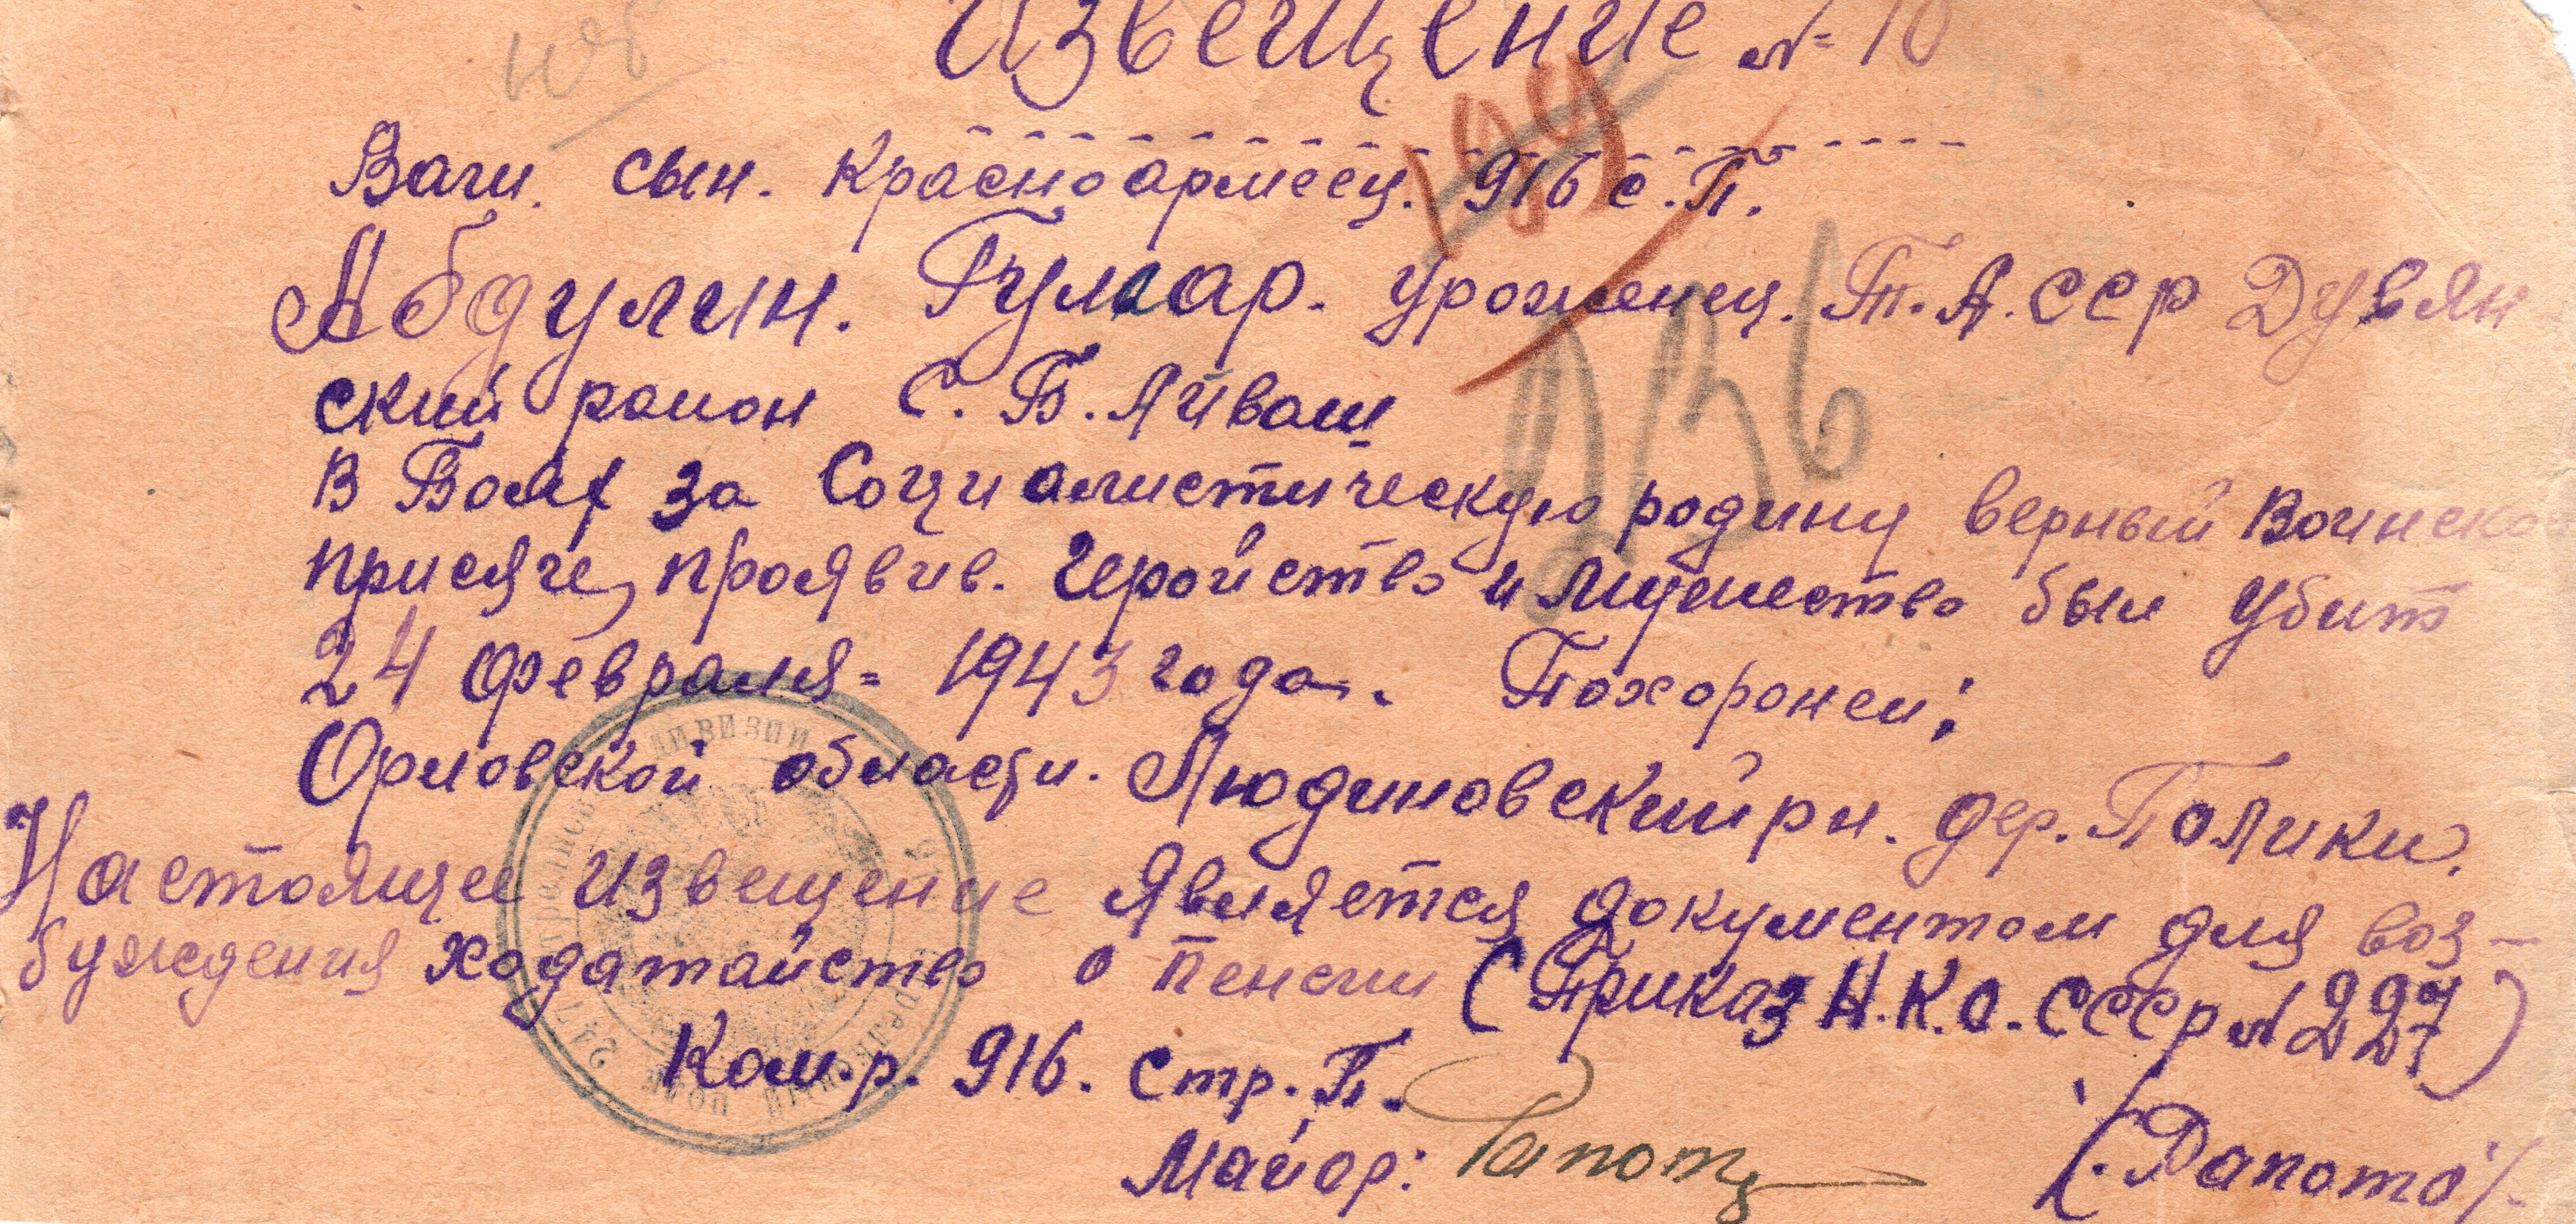 Извещение № 10
Ваш. сын. красноармеец. 916 с.П.
Абдулин. Гумар. уроженец. Т.А.ССР Дувян
ский раион С. Б. Айваш
В Боях за Социалистическую родину верный Воинско
присяге, проявив. Геройство и Мужество был Убит
24 февраля = 1943 года. Похоронен:
Орловской области. Людиновский рн. дер. Полики.
Настоящее извещение является документом для воз-
буждения ходатайство о пенсии (Приказ Н.К.О. СССР № 227)
Ком.р. 916. Стр. П.
Майор:
236